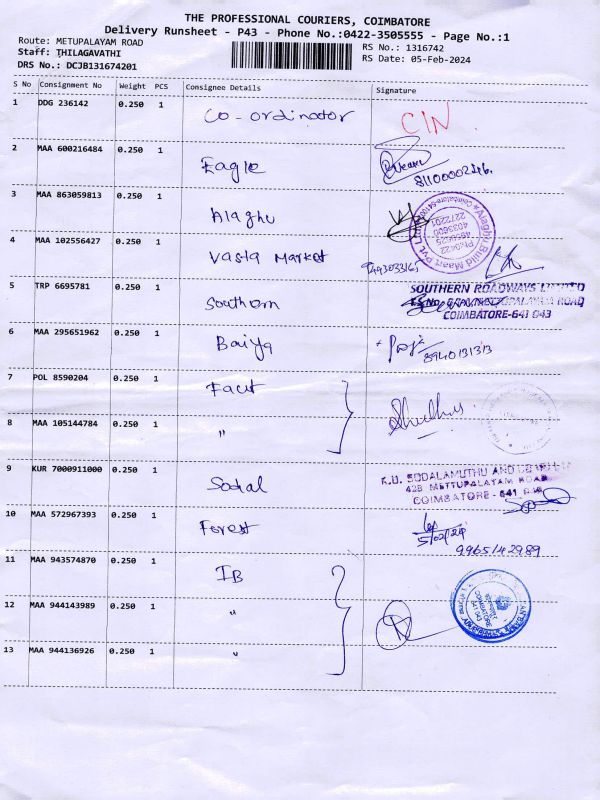 THE PROFESSIONAL COURIERS, COIMBATORE
Delivery Runsheet - P43 - Phone No.:0422-3505555 - Page No.:1
Route: METUPALAYAM ROAD RS No.: 1316742
Staff: THILAGAVATHI RS Date: 05-Feb-2024
DRS No.: DCJB131674201
S No Consignment No Weight PCS Consignee Details Signature
1 DDG 236142 0.250 1 Co-ordinator CIN
2 MAA 600216484 0.250 1 Eagle
3 MAA 863059813 0.250 1 Alaghu
Alaghu Build Maart Pvt. Ltd
4 MAA 102556427 0.250 1 Vasta Market
5 TRP 6695781 0.250 1 Southern
SOUTHERN ROADWAYS LIMITED
COIMBATORE-641 043
6 MAA 295651962 0.250 1 Baiya 8940131313
7 POL 8590204 0.250 1 Fact
8 MAA 105144784 0.250 1 "
9 KUR 7000911000 0.250 1 Sodal
K.U. SODALAMUTHU AND
428 METTUPALAYAM ROAD
COIMBATORE - 641 043
10 MAA 572967393 0.250 1 Forest 5/02/24
9965142989
11 MAA 943574870 0.250 1 IB
12 MAA 944143989 0.250 1 "
13 MAA 944136926 0.250 1 "